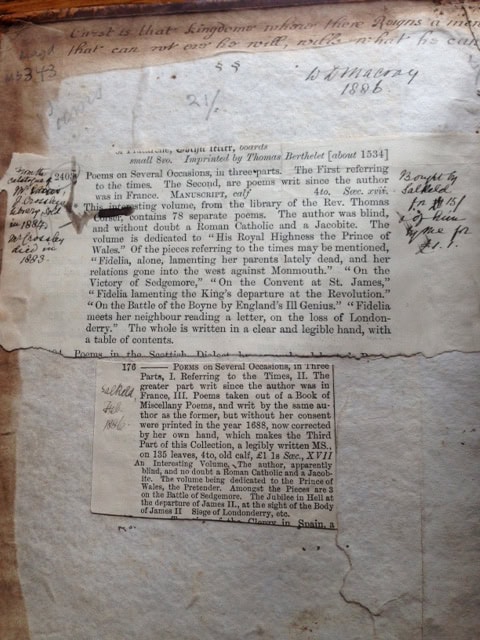 Christ is that kingdome where there Reigns a mon
that can not err he will, while what he can
W D Macray
1886
21/-
From the
catalogue of
Mr
J Crossley
library, sold
in 1884.
Mr Crossley
died in
1883.
small 8vo. Imprinted by Thomas Berthelet [about 1534]
2405 Poems on Several Occasions, in three parts. The First referring
to the times. The Second, are poems writ since the author
was in France. MANUSCRIPT, calf 4to. Sæc. xvii.
This interesting volume, from the library of the Rev. Thomas
contains 78 separate poems. The author was blind,
and without doubt a Roman Catholic and a Jacobite. The
volume is dedicated to "His Royal Highness the Prince of
Wales." Of the pieces referring to the times may be mentioned,
"Fidelia, alone, lamenting her parents lately dead, and her
relations gone into the west against Monmouth." "On the
Victory of Sedgemore," "On the Convent at St. James,"
"Fidelia lamenting the King's departure at the Revolution."
"On the Battle of the Boyne by England's Ill Genius." "Fidelia
meets her neighbour reading a letter, on the loss of London-
derry." The whole is written in a clear and legible hand, with
a table of contents.
Poems in the Scottish Dialect
Bought by
Salkeld
for
by me for
£1. 1.
176 —— POEMS on Several Occasions, in Three
Parts, I. Referring to the Times, II. The
greater part writ since the author was in
France, III. Poems taken out of a Book of
Miscellany Poems, and writ by the same au-
thor as the former, but without her consent
were printed in the year 1688, now corrected
by her own hand, which makes the Third
Part of this Collection, a legibly written MS.,
on 135 leaves, 4to, old calf, £1 1s Sæc., XVII
An Interesting Volume, The author, apparently
blind, and no doubt a Roman Catholic and a Jacob-
ite. The volume being dedicated to the Prince of
Wales, the Pretender. Amongst the Pieces are 3
on the Battle of Sedgemore. The Jubilee in Hell at
the departure of James II., at the sight of the Body
of James II Siege of Londonderry, etc.
of the Clergy in Spain, a
Salkeld,
Feb.
1886